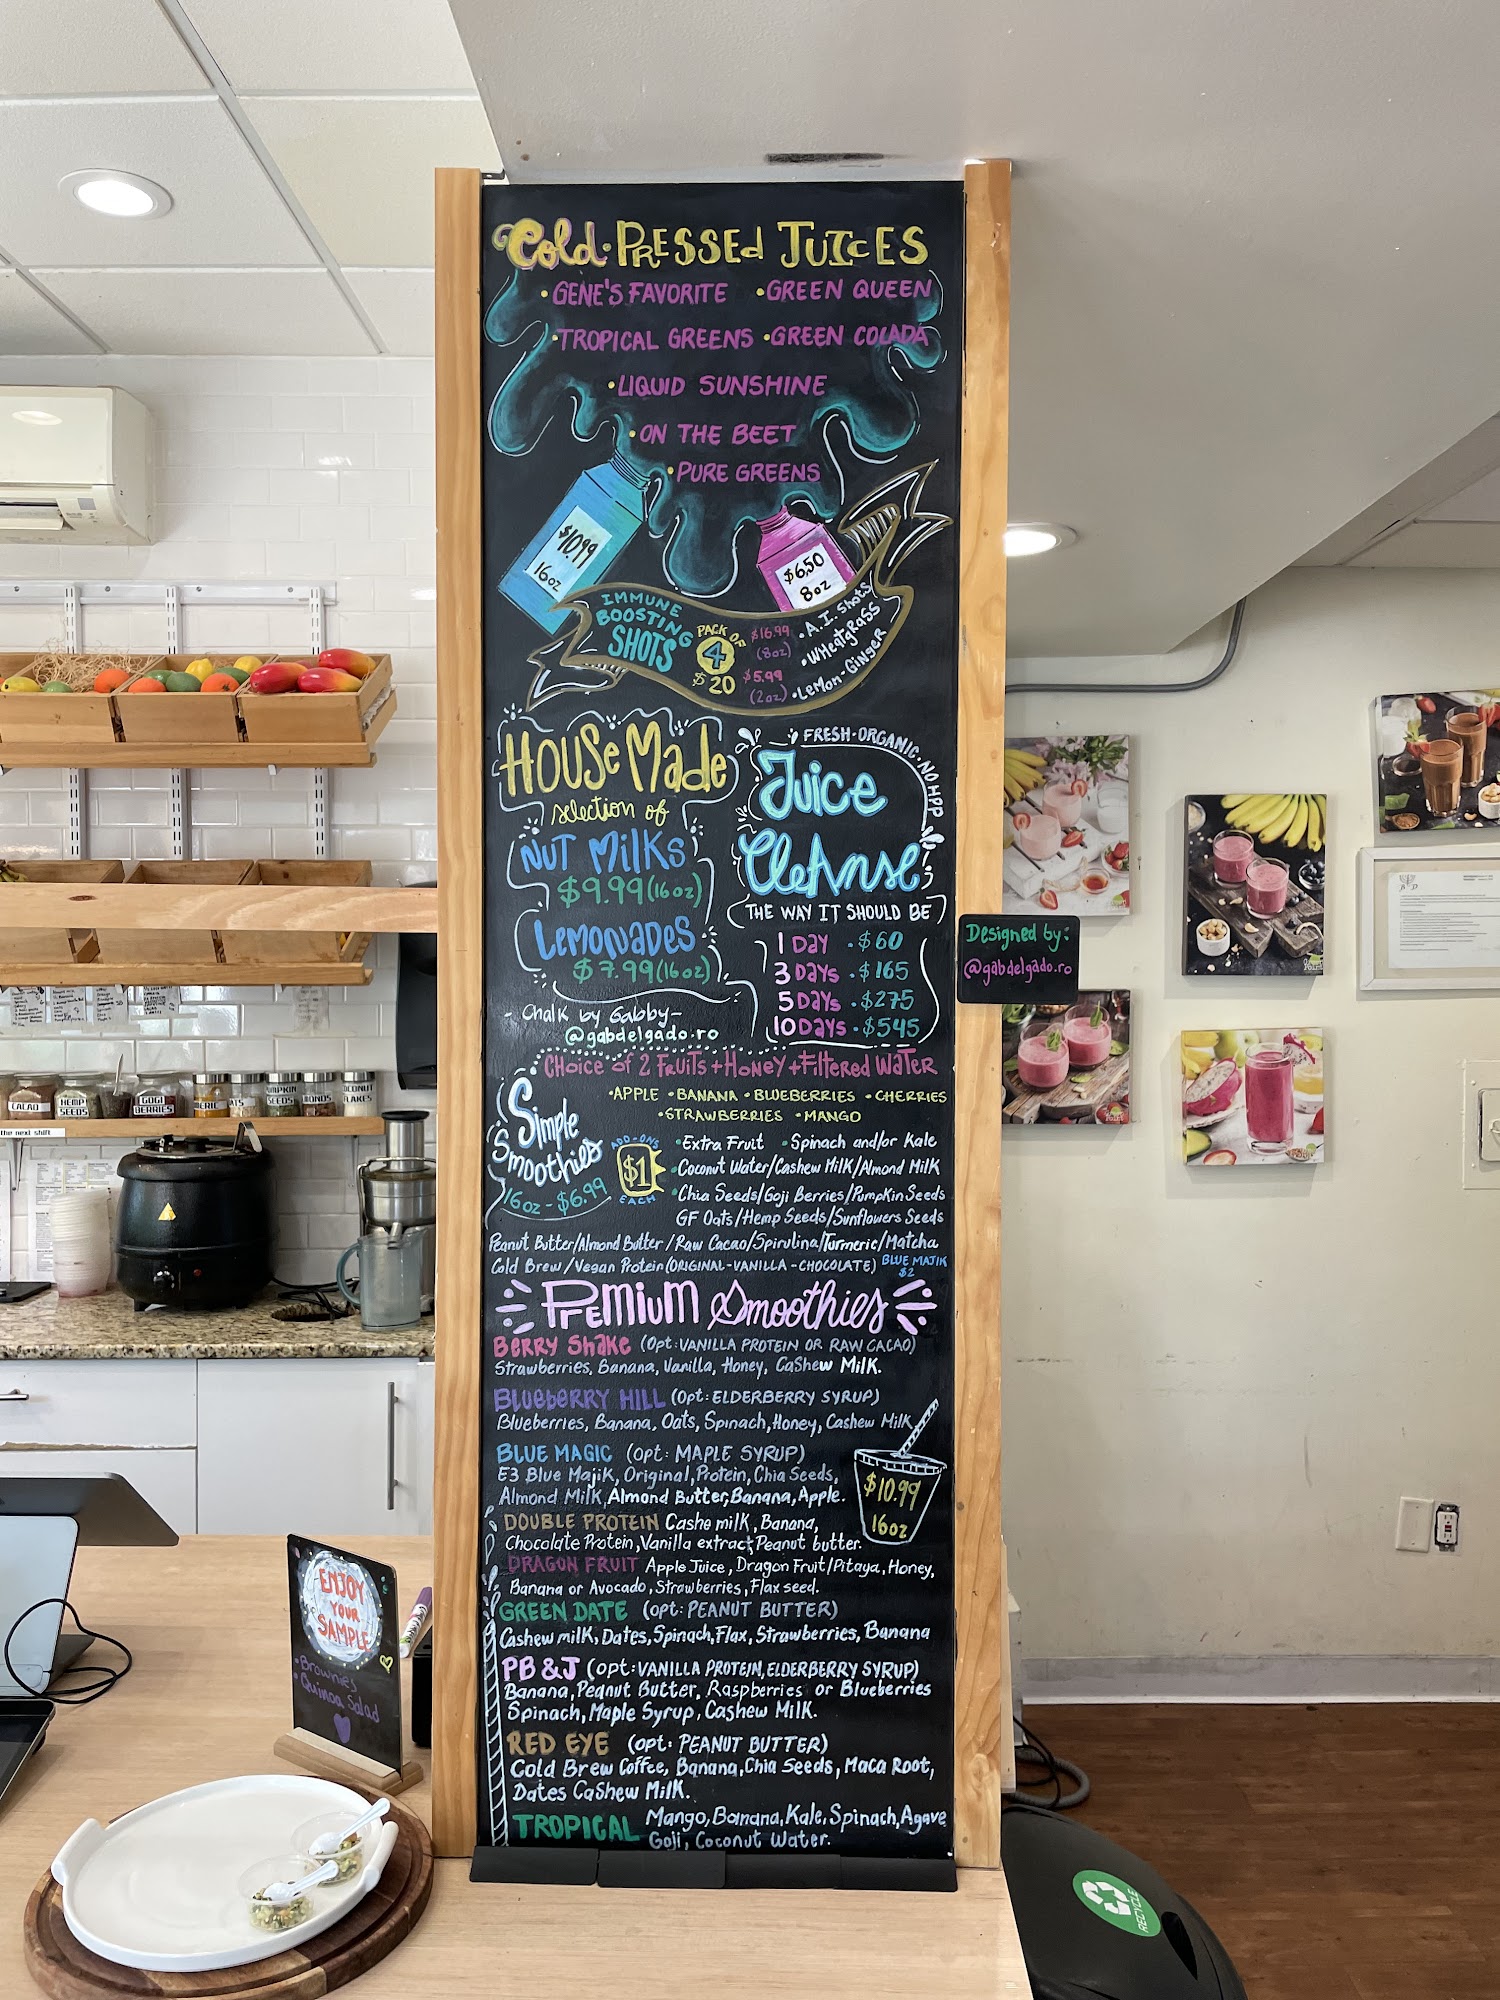 Cold-Pressed Juices
• GENE'S FAVORITE • GREEN QUEEN
• TROPICAL GREENS • GREEN COLADA
• LIQUID SUNSHINE
• ON THE BEET
• PURE GREENS
$10.99
16oz
$6.50
8oz
IMMUNE
BOOSTING
SHOTS
PACK OF
4
$20
$16.99
(8oz)
$5.99
(2oz)
• A.I. Shots
• WHeatgRASS
• LeMon-GinGeR
HOUSe Made
selection of
NUT MilKs
$9.99 (16oz)
LEMONADES
$7.99 (16oz)
- Chalk by Gabby -
@gabdelgado.ro
FRESH-ORGANIC-NO HPP
Juice
Cleanse
THE WAY IT SHOULD BE
1 DAY • $60
3 DAYS • $165
5 DAYs • $275
10 DAYs • $545
Designed by:
@gabdelgado.ro
CHOICE of 2 FRUITS + HONEY + FILTERED WATER
Simple
Smoothies
16oz - $6.99
• APPLE • BANANA • BLUEBERRIES • CHERRIES
• STRAWBERRIES • MANGO
ADD-ONS
$1
EACH
• Extra Fruit • Spinach and/or Kale
• Coconut Water/Cashew Milk/Almond Milk
• Chia Seeds/Goji Berries/Pumpkin Seeds
GF Oats/Hemp Seeds/Sunflowers Seeds
Peanut Butter/Almond Butter/Raw Cacao/Spirulina/Turmeric/Matcha
Cold Brew/Vegan Protein (ORIGINAL-VANILLA-CHOCOLATE) BLUE MAJIK
$2
Premium Smoothies
BERRY SHAKE (Opt: VANILLA PROTEIN OR RAW CACAO)
Strawberries, Banana, Vanilla, Honey, CaShew MilK.
BLUEBERRY HILL (Opt: ELDERBERRY SYRUP)
Blueberries, Banana, Oats, Spinach, Honey, Cashew Milk
BLUE MAGIC (opt: MAPLE SYRUP)
E3 Blue MajiK, Original, Protein, Chia Seeds,
Almond Milk, Almond Butter, Banana, Apple.
$10.99
16oz
DOUBLE PROTEIN Cashe milk, Banana,
Chocolate Protein, Vanilla extract, Peanut butter.
DRAGON FRUIT Apple Juice, Dragon Fruit/Pitaya, Honey,
Banana or Avocado, Strawberries, Flax seed.
GREEN DATE (opt: PEANUT BUTTER)
Cashew milK, Dates, Spinach, Flax, Strawberries, Banana
PB & J (opt: VANILLA PROTEIN, ELDERBERRY SYRUP)
Banana, Peanut Butter, Raspberries or Blueberries
Spinach, Maple Syrup, Cashew Milk.
RED EYE (opt: PEANUT BUTTER)
Cold Brew Coffee, Banana, Chia Seeds, Maca Root,
Dates CaShew MilK.
TROPICAL Mango, Banana, Kale, Spinach, Agave
Goji, Coconut Water.
CACAO
HEMP
SEEDS
GOGI
BERRIES
SEEDS
the next shift
ENJOY
YOUR
SAMPLE
• Brownies
• Quinoa Salad
RECYCLE